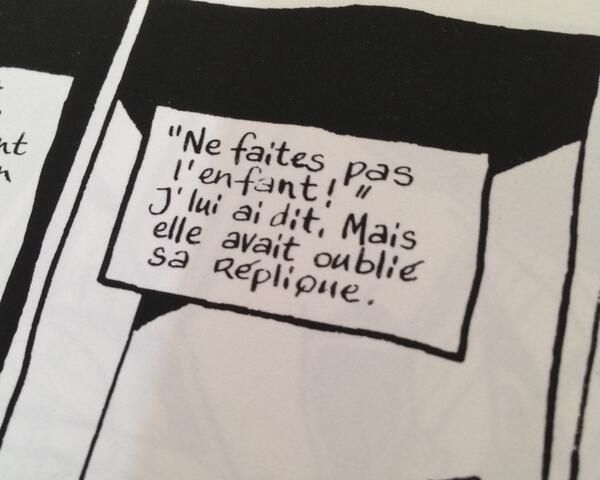 nt
"Ne faites pas
l'enfant!"
J'lui ai dit. Mais
elle avait oublié
sa Réplique.